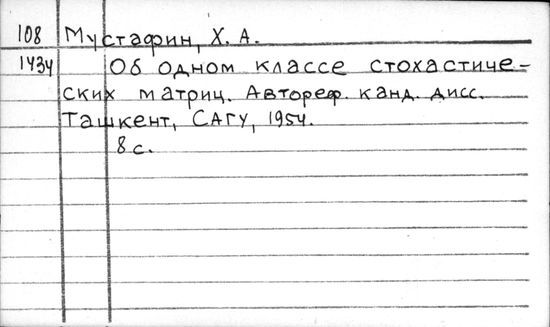 108 Мустафин, Х. А.
1434 Об одном классе стохастиче-
ских матриц. Автореф. канд. дисс.
Ташкент, САГУ, 1954.
8 с.